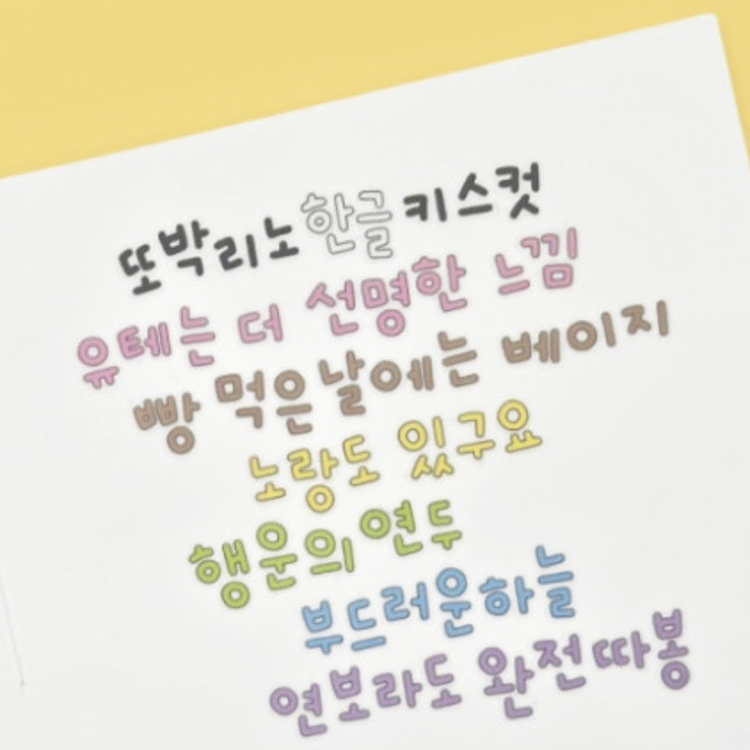 또박리노한글키스컷
유테는 더 선명한 느낌
빵 먹은날에는 베이지
노랑도 있구요
행운의연두
부드러운하늘
연보라도 완전따봉